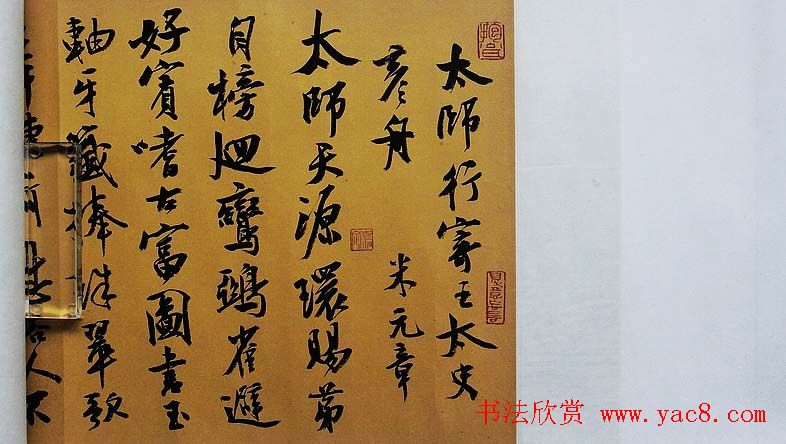 太師行寄王太史
彦舟　米元章
太師天源環賜第
榜迴鸞鵶雀避
好賓嗜古富圖書玉
軸牙籤捧珠翠
人不
书法欣赏 www.yac8.com